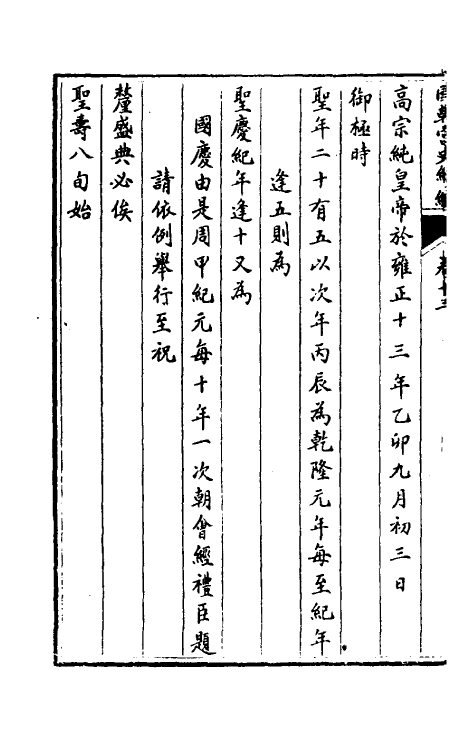 國朝宮史續編
卷十三
高宗純皇帝於雍正十三年乙卯九月初三日
御極時
聖年二十有五以次年丙辰為乾隆元年每至紀年
逢五則為
聖慶紀年逢十又為
國慶由是周甲紀元每十年一次朝會經禮臣題
請依例舉行至祝
釐盛典必俟
聖壽八旬始